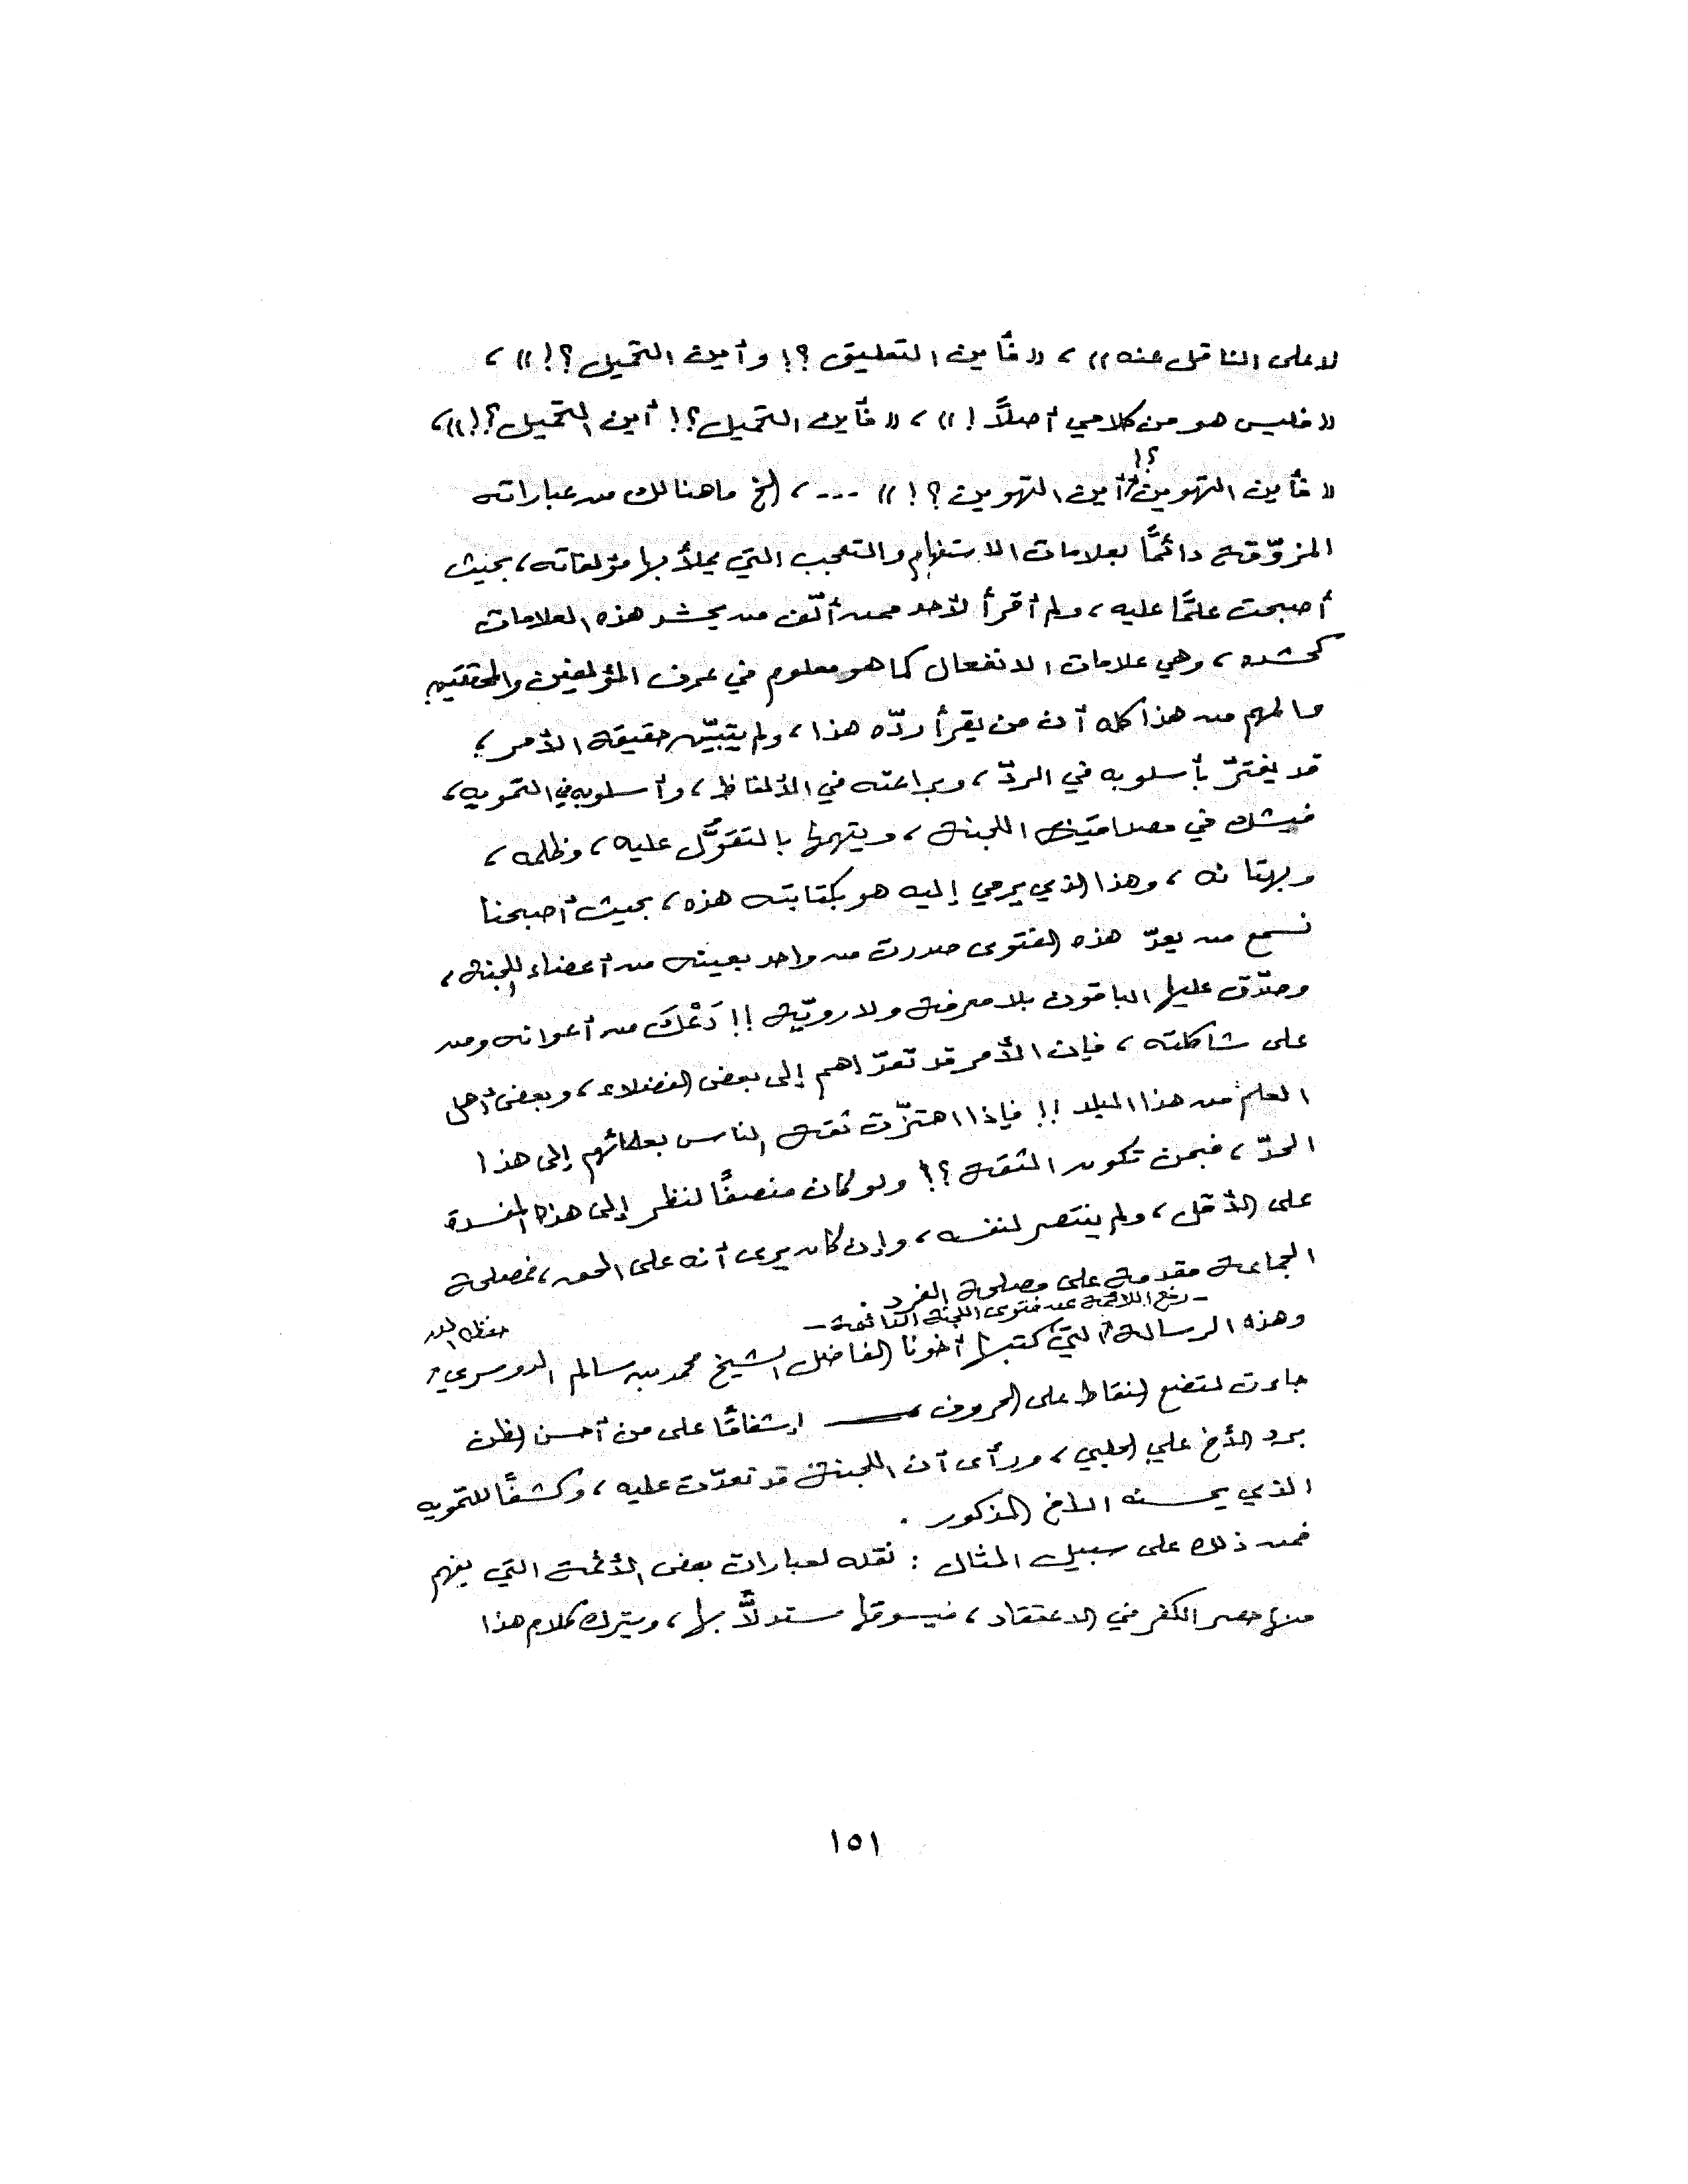 لا على الناقل عنه))، ((فأين التعليق؟! وأين التحميل؟!))،
((فليس هو من كلامي أصلاً!))، ((فأين التحميل؟! أين التحميل؟!))،
((فأين التهوين؟! أين التهوين؟!)) ...، إلخ ما هنالك من عباراته
المزوّقة دائمًا بعلامات الاستفهام والتعجب التي يملأ بها مؤلفاته، بحيث
أصبحت علمًا عليه، ولم أقرأ لأحد ممن ألّف من يحشد هذه العلامات
كحشده، وهي علامات الانفعال كما هو معلوم في عرف المؤلفين والمحققين
والمهم من هذا كله أن من يقرأ ردّه هذا، ولم يتبيّن حقيقة الأمر؛
قد يغترّ بأسلوبه في الردّ، وبراعته في الألفاظ، وأسلوبه في التمويه،
فيشك في مصداقية اللجنة، ويتهمها بالتقوُّل عليه، وظلمه،
وبهتانه، وهذا الذي يرمي إليه هو بكتابته هذه، بحيث أصبحنا
نسمع من يعدّ هذه الفتوى صدرت من واحد بعينه من أعضاء اللجنة،
وصدّق عليها الباقون بلا معرفة ولا رويّة!! دَعْكَ من أعوانه ومن
على شاكلته، فإن الأمر قد تعدّاهم إلى بعض الفضلاء، وبعض أهل
العلم من هذا البلد!! فإذا اهتزّت ثقة الناس بعلمائهم إلى هذا
الحدّ، فبمن تكون الثقة؟! ولو كان منصفًا لنظر إلى هذه المفسدة
على الأقل، ولم ينتصر لنفسه، وإن كان يرى أنه على الحق، فمصلحة
الجماعة مقدمة على مصلحة الفرد.
وهذه الرسالة - رفع اللائمة عن فتوى اللجنة الدائمة - التي كتبها أخونا الفاضل الشيخ محمد بن سالم الدوسري حفظه الله
جاءت لتضع النقاط على الحروف إشفاقًا على من أحسن الظن
برد الأخ علي الحلبي، ورأى أن اللجنة قد تعدّت عليه، وكشفًا للتمويه
الذي يحسنه الأخ المذكور.
فمن ذلك على سبيل المثال: نقله لعبارات بعض الأئمة التي يفهم
منها حصر الكفر في الاعتقاد، فيسوقها مستدلاًّ بها، ويترك كلام هذا
١٥١